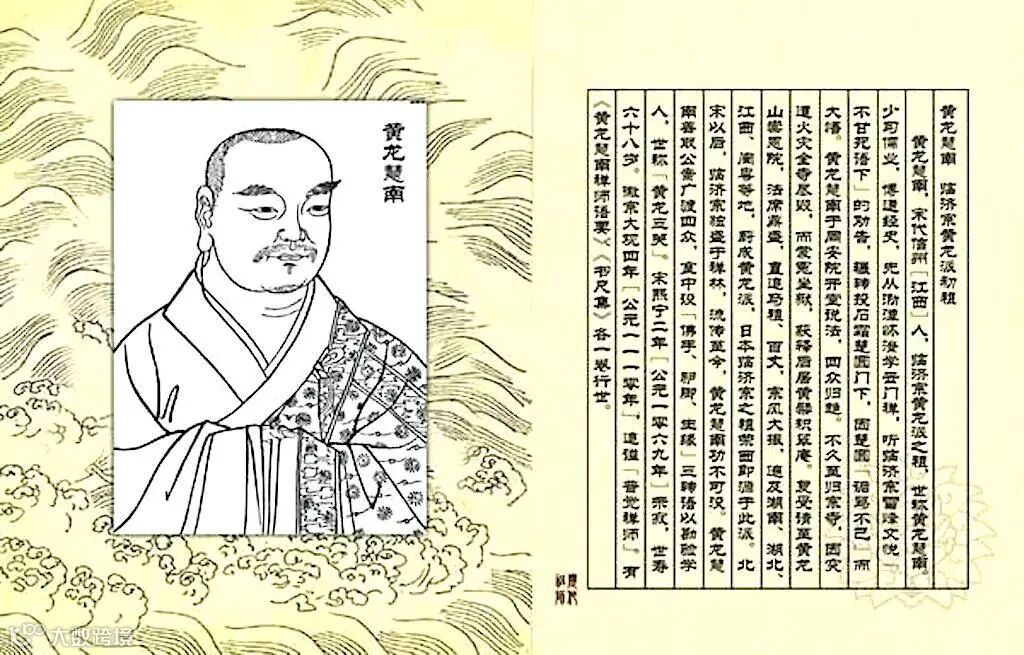 黄龙慧南
黄龙慧南　临济宗黄龙派初祖
黄龙慧南，宋代信州［江西］人，临济宗黄龙派之祖，世称黄龙慧南。
少习儒业，博通经史，先从泐潭怀澄学云门禅，听临济宗云峰文悦「
不甘死语下」的劝告，辗转投石霜楚圆门下，因楚圆「诟骂不已」而
大悟。黄龙慧南于同安院开堂说法，四众归趋。不久至归宗寺，因突
遭火灾全寺尽毁，而蒙冤坐狱，获释后居黄檗积翠庵。复受请至黄龙
山崇恩院，法席鼎盛，直追马祖、百丈，宗风大振，遍及湖南、湖北、
江西、闽粤等地，蔚成黄龙派，日本临济宗之祖荣西即源于此派。北
宋以后，临济宗独盛于禅林，流传至今，黄龙慧南功不可没。黄龙慧
南喜取公案广渡四众，室中设「佛手、驴脚、生缘」三转语以勘验学
人，世称「黄龙三关」。宋熙宁二年［公元一零六九年］示寂，世寿
六十八岁。徽宗大观四年［公元一一一零年］，追谥「普觉禅师」。有
《黄龙慧南禅师语要》、《书尺集》各一卷行世。
大数跨境